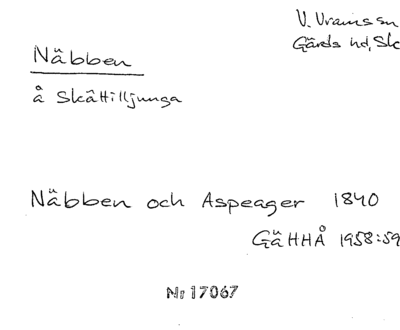 V. Vramssn
Gärds hd, Sk
Näbben
å Skättilljunga
Näbben och Aspeager 1840
GäHHÅ 1958:59
Nr 17067